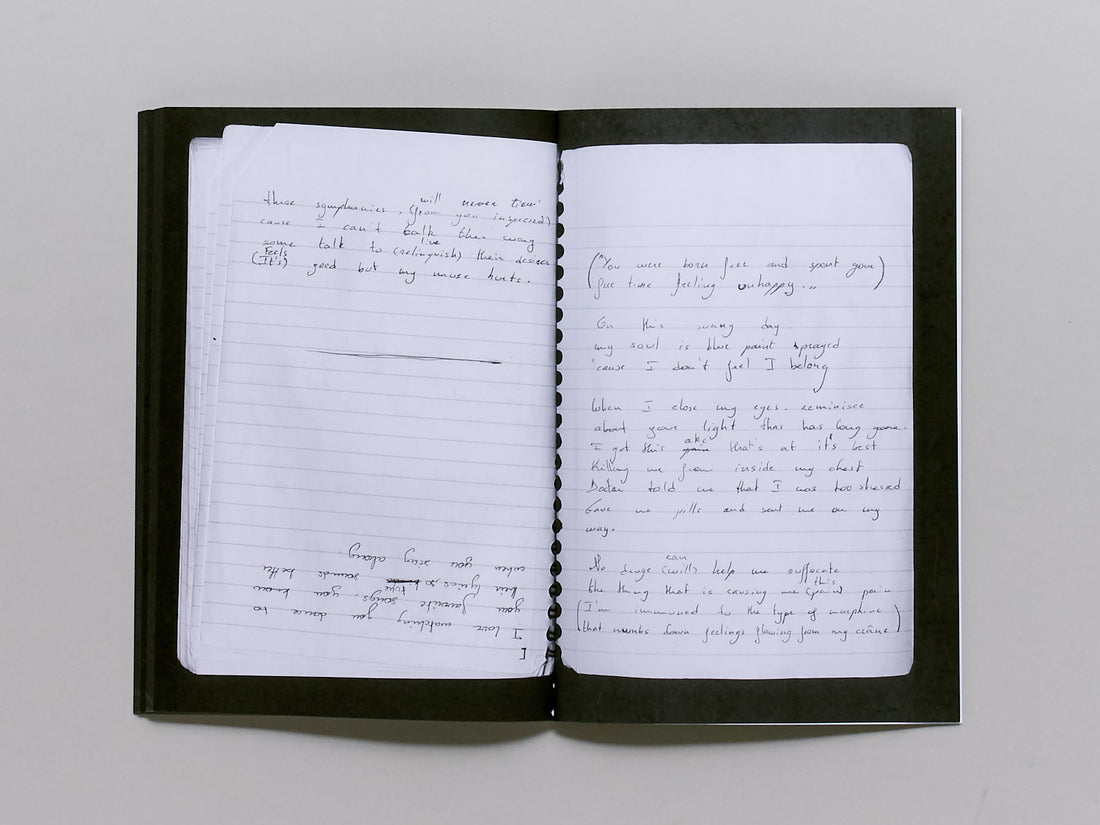 these symphonies, (from you inspired) will never
'cause I can't talk their way
some talk to (relinquish) live their desires
(It's) Feels good but my muse hurts.
I love watching you dance to
your favorite songs, you know
their lyrics so
when you sing along.
("You were born free and spent your
free time feeling unhappy..)
On this sunny day.
my soul is blue paint sprayed
'cause I don't feel I belong
When I close my eyes. reminisce
about your light that has long gone.
I got this pain ake that's at it's best
Killing me from inside my chest
Doctor told me that I was too stressed
Gave me pills and sent me on my
way.
No drugs (will) can help me suffocate
the thing that is causing me (pain) this pain
(I'm immuned to the type of morphine
that numbs down feelings flowing from my crâne)